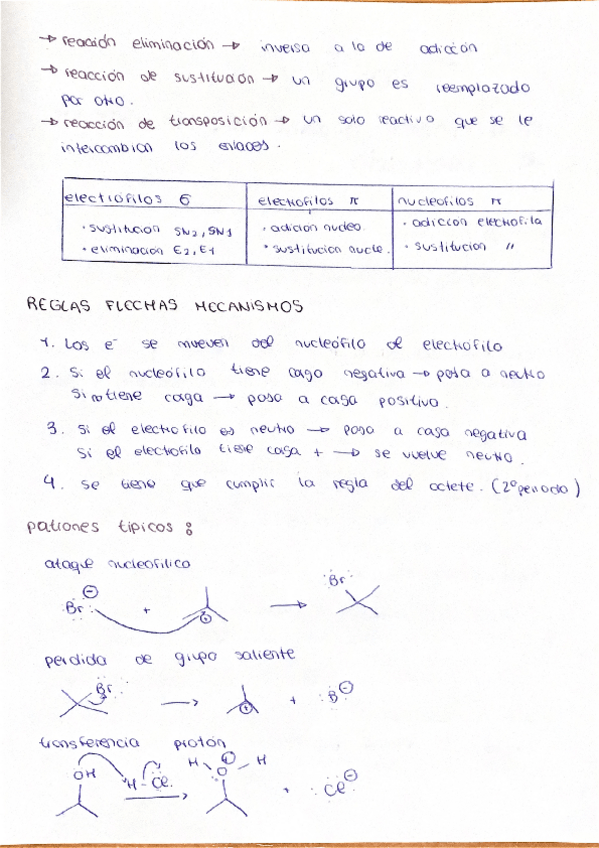 → reacción eliminación → inverso a la de adición
→ reacción de sustitución → un grupo es reemplazado
por otro.
→ reacción de transposición → un solo reactivo que se le
intercambian los enlaces.
electrófilos σ electrofilos π nucleofilos π
· sustitucion SN2, SN1 · adición nucleo. · adiccion electrofila
· eliminación E2, E1 · sustitucion nucle. · sustitucion "
REGLAS FLECHAS MECANISMOS
1. Los e⁻ se mueven del nucleófilo al electrófilo
2. Si el nucleófilo tiene carga negativa → pasa a neutro
Si no tiene carga → pasa a carga positiva.
3. Si el electrofilo es neutro → pasa a carga negativa
Si el electrofilo tiene carga + → se vuelve neutro.
4. Se tiene que cumplir la regla del octete. (2º periodo)
patrones típicos:
ataque nucleofílico
Br ⊖ + ⊕ → Br
perdida de grupo saliente
Br → ⊕ + B ⊖
transferencia protón
OH H - Cl → H O ⊕ H + Cl ⊖